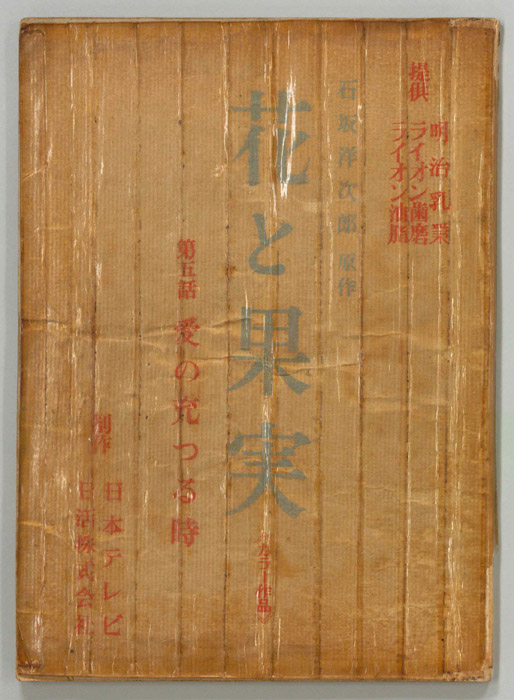 提供
明治乳業
ライオン歯磨
ライオン油脂
石坂洋次郎 原作
花と果実
(カラー作品)
第五話 愛の充つる時
制作
日本テレビ
日活株式会社